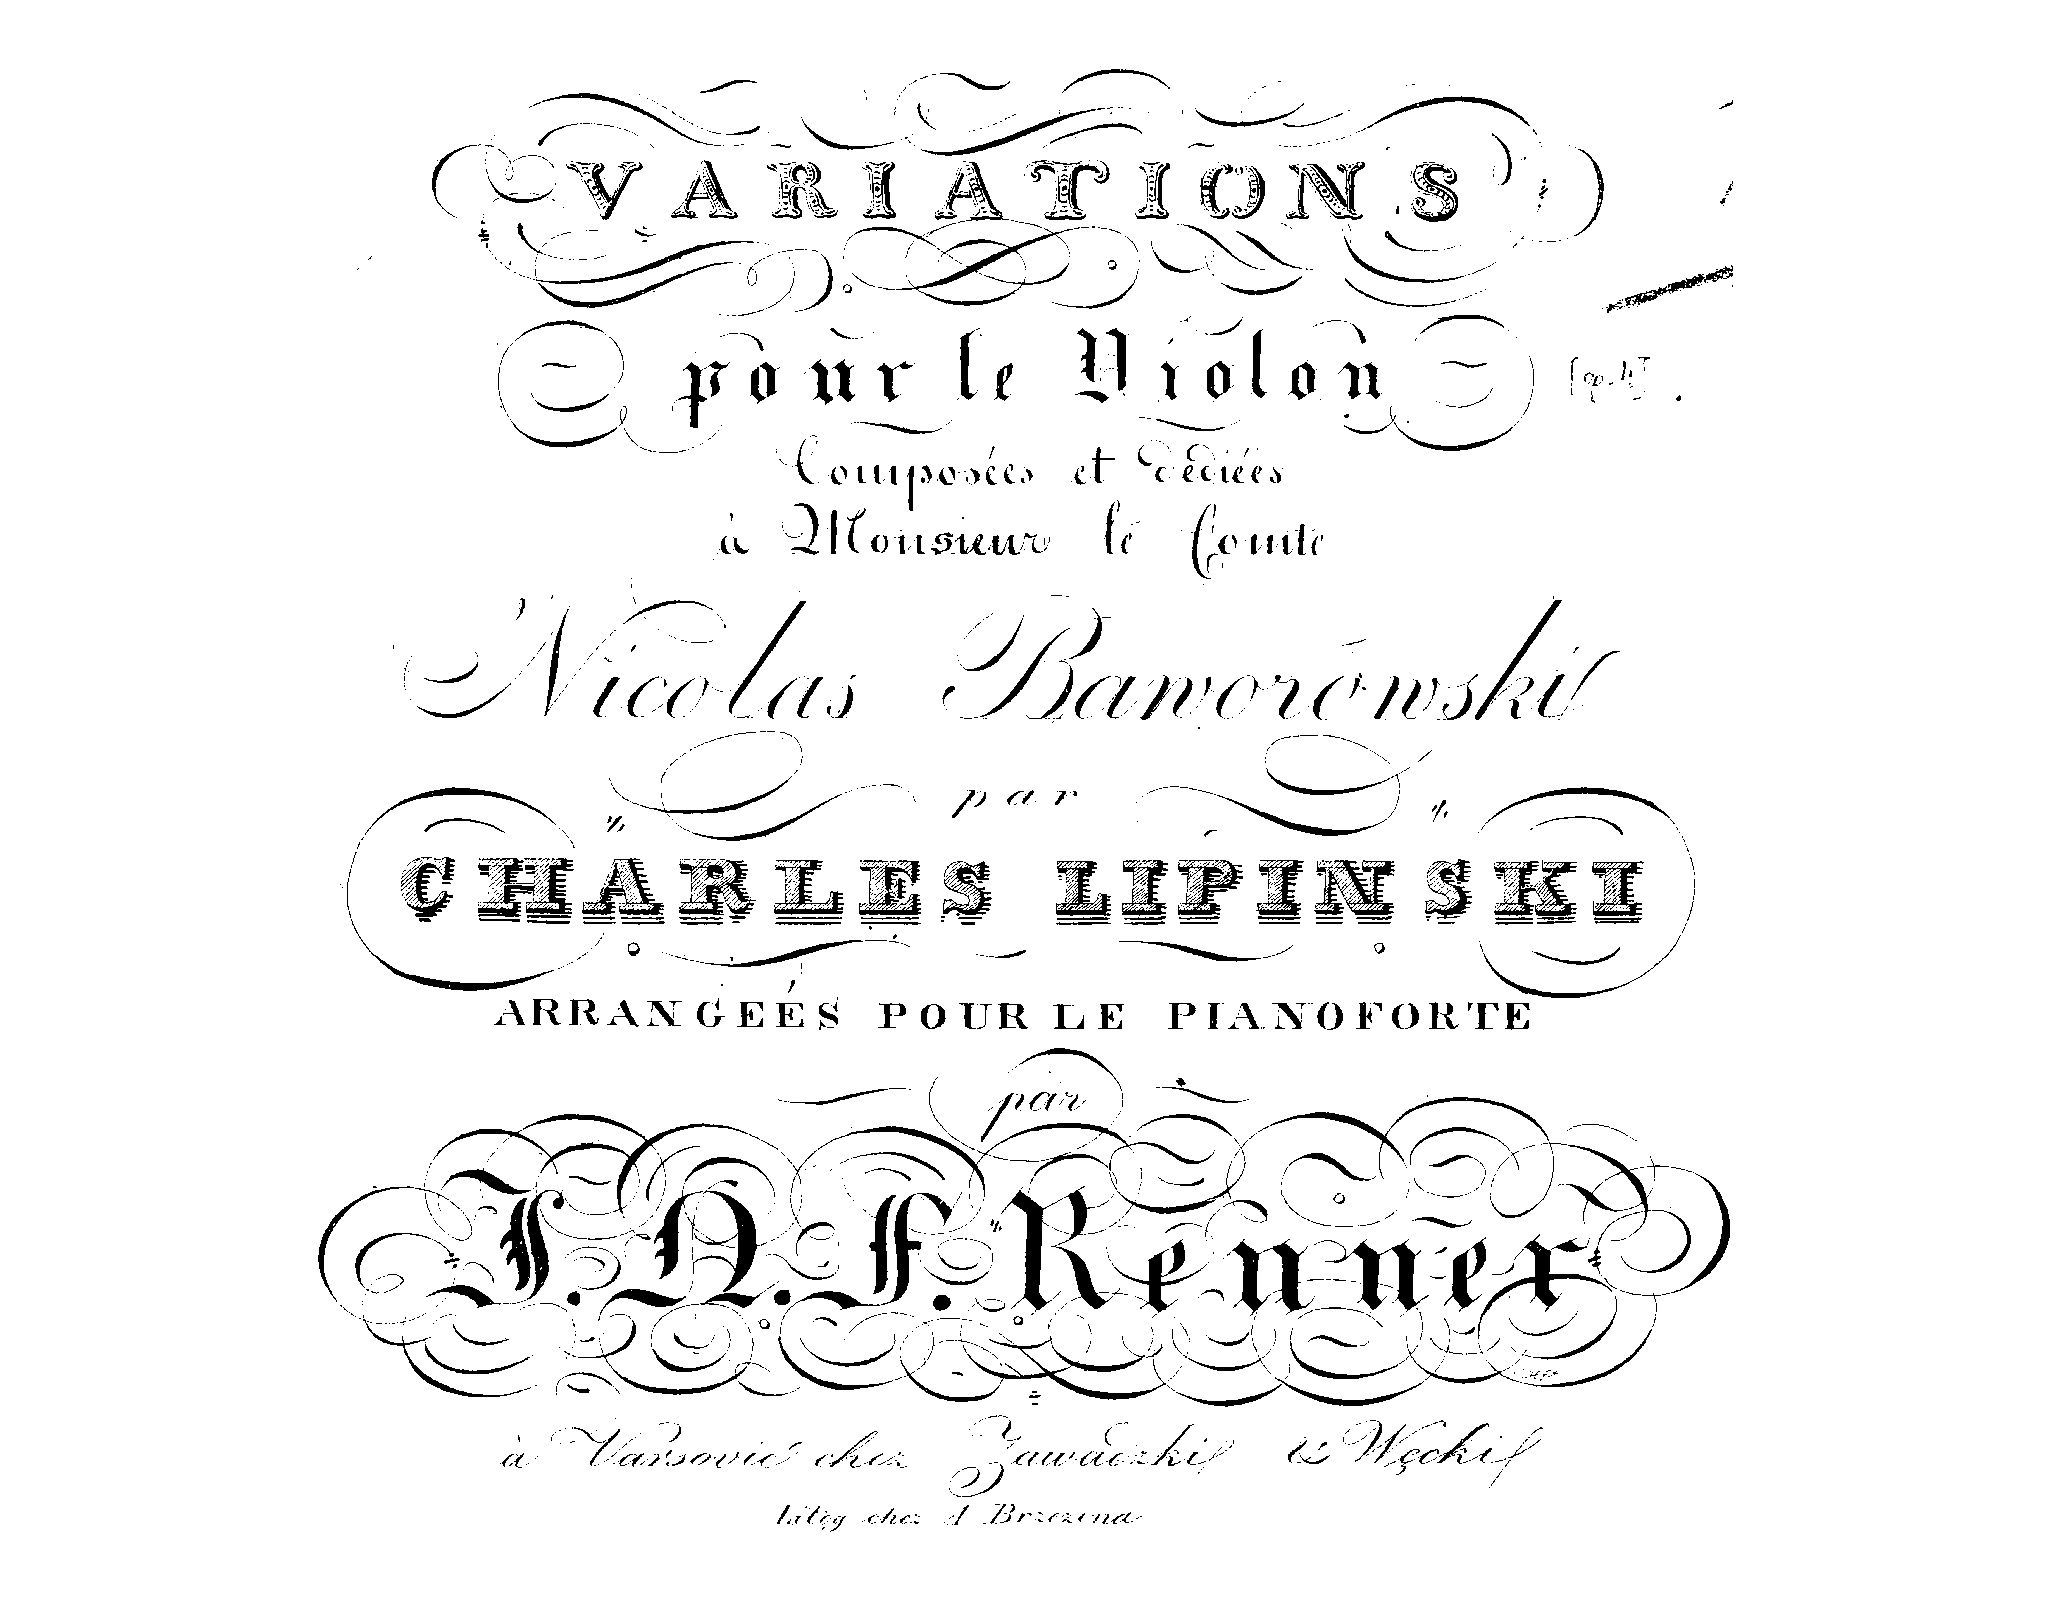 VARIATIONS
pour le Violon
[op. 4]
Composées et dédiées
à Monsieur le Comte
Nicolas Baworówski
par
CHARLES LIPINSKI
ARRANGEÉS POUR LE PIANOFORTE
par
J. N. F. Renner
à Varsovie chez Zawadzki & Węcki
Litog chez A Brzezina